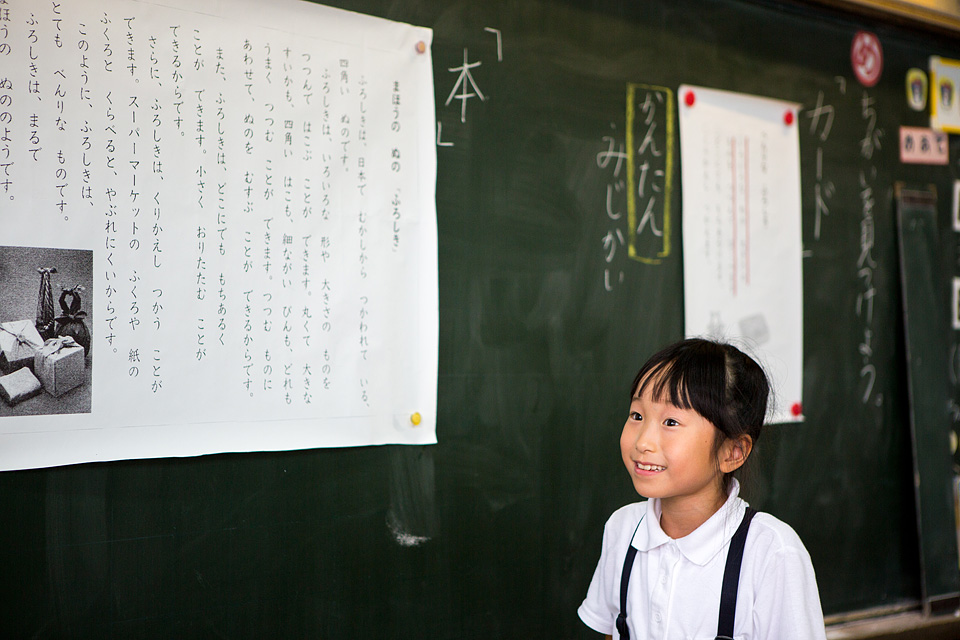 ちがいを見つけよう。
「カード」
かんたん
みじかい
「本」
まほうの ぬの 「ふろしき」
ふろしきは、日本で むかしから つかわれて いる、
四角い ぬのです。
ふろしきは、いろいろな 形や 大きさの ものを
つつんで はこぶ ことが できます。丸くて 大きな
すいかも、四角い はこも、細ながい びんも、どれも
うまく つつむ ことが できます。つつむ ものに
あわせて、ぬのを むすぶ ことが できるからです。
また、ふろしきは、どこにでも もちあるく
ことが できます。小さく おりたたむ ことが
できるからです。
さらに、ふろしきは、くりかえし つかう ことが
できます。スーパーマーケットの ふくろや 紙の
ふくろと くらべると、やぶれにくいからです。
このように、ふろしきは、
とても べんりな ものです。
ふろしきは、まるで
まほうの ぬののようです。